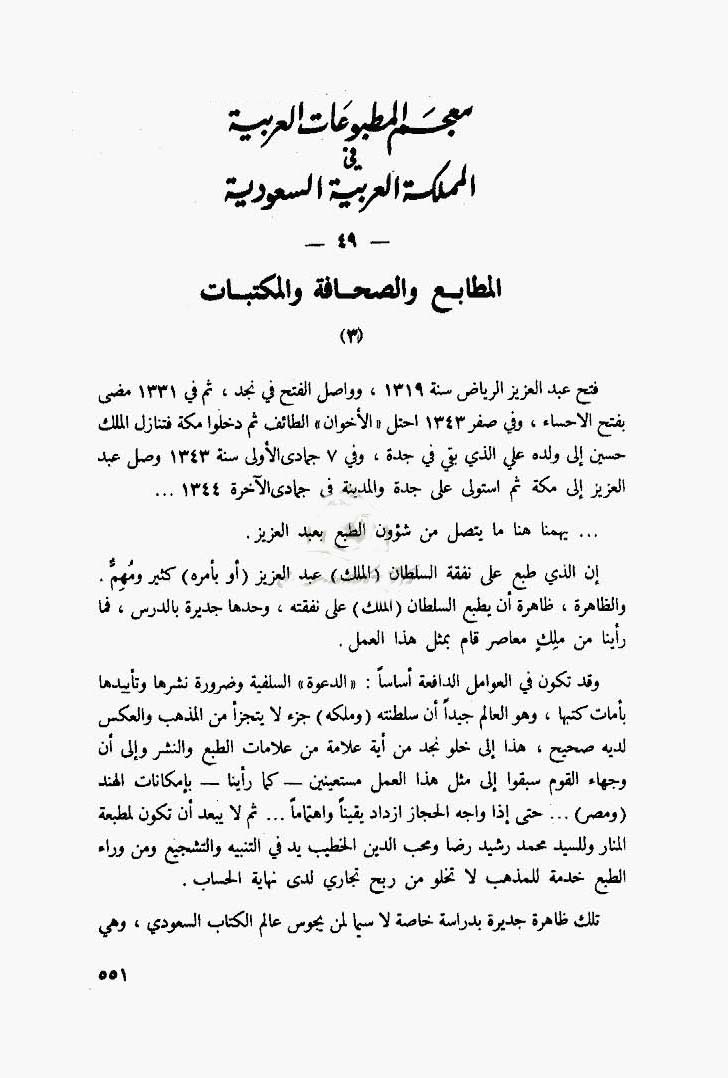 معجم المطبوعات العربية
في
المملكة العربية السعودية
— ٤٩ —
المطابع والصحافة والمكتبات
(٣)
فتح عبد العزيز الرياض سنة ١٣١٩ ، وواصل الفتح في نجد ، ثم في ١٣٣١ مضى
بفتح الاحساء ، وفي صفر ١٣٤٣ احتل «الأخوان» الطائف ثم دخلوا مكة فتنازل الملك
حسين إلى ولده علي الذي بقي في جدة ، وفي ٧ جمادى الأولى سنة ١٣٤٣ وصل عبد
العزيز إلى مكة ثم استولى على جدة والمدينة في جمادى الآخرة ١٣٤٤ ...
... يهمنا هنا ما يتصل من شؤون الطبع بعبد العزيز .
إن الذي طبع على نفقة السلطان (الملك) عبد العزيز (أو بأمره) كثير ومُهِمٌّ .
والظاهرة ، ظاهرة أن يطبع السلطان (الملك) على نفقته ، وحدها جديرة بالدرس ، فما
رأينا من ملِكٍ معاصر قام بمثل هذا العمل .
وقد تكون في العوامل الدافعة أساساً : «الدعوة» السلفية وضرورة نشرها وتأييدها
بأمات كتبها ، وهو العالم جيداً أن سلطنته (وملكه) جزء لا يتجزأ من المذهب والعكس
لديه صحيح ، هذا إلى خلو نجد من أية علامة من علامات الطبع والنشر وإلى أن
وجهاء القوم سبقوا إلى مثل هذا العمل مستعينين — كما رأينا — بإمكانات الهند
(ومصر) ... حتى إذا واجه الحجاز ازداد يقيناً واهتماماً ... ثم لا يبعد أن تكون لمطبعة
المنار وللسيد محمد رشيد رضا ومحب الدين الخطيب يد في التنبيه والتشجيع ومن وراء
الطبع خدمة للمذهب لا تخلو من ربح تجاري لدى نهاية الحساب .
تلك ظاهرة جديرة بدراسة خاصة لا سيما لمن يجوس عالم الكتاب السعودي ، وهي
٥٥١